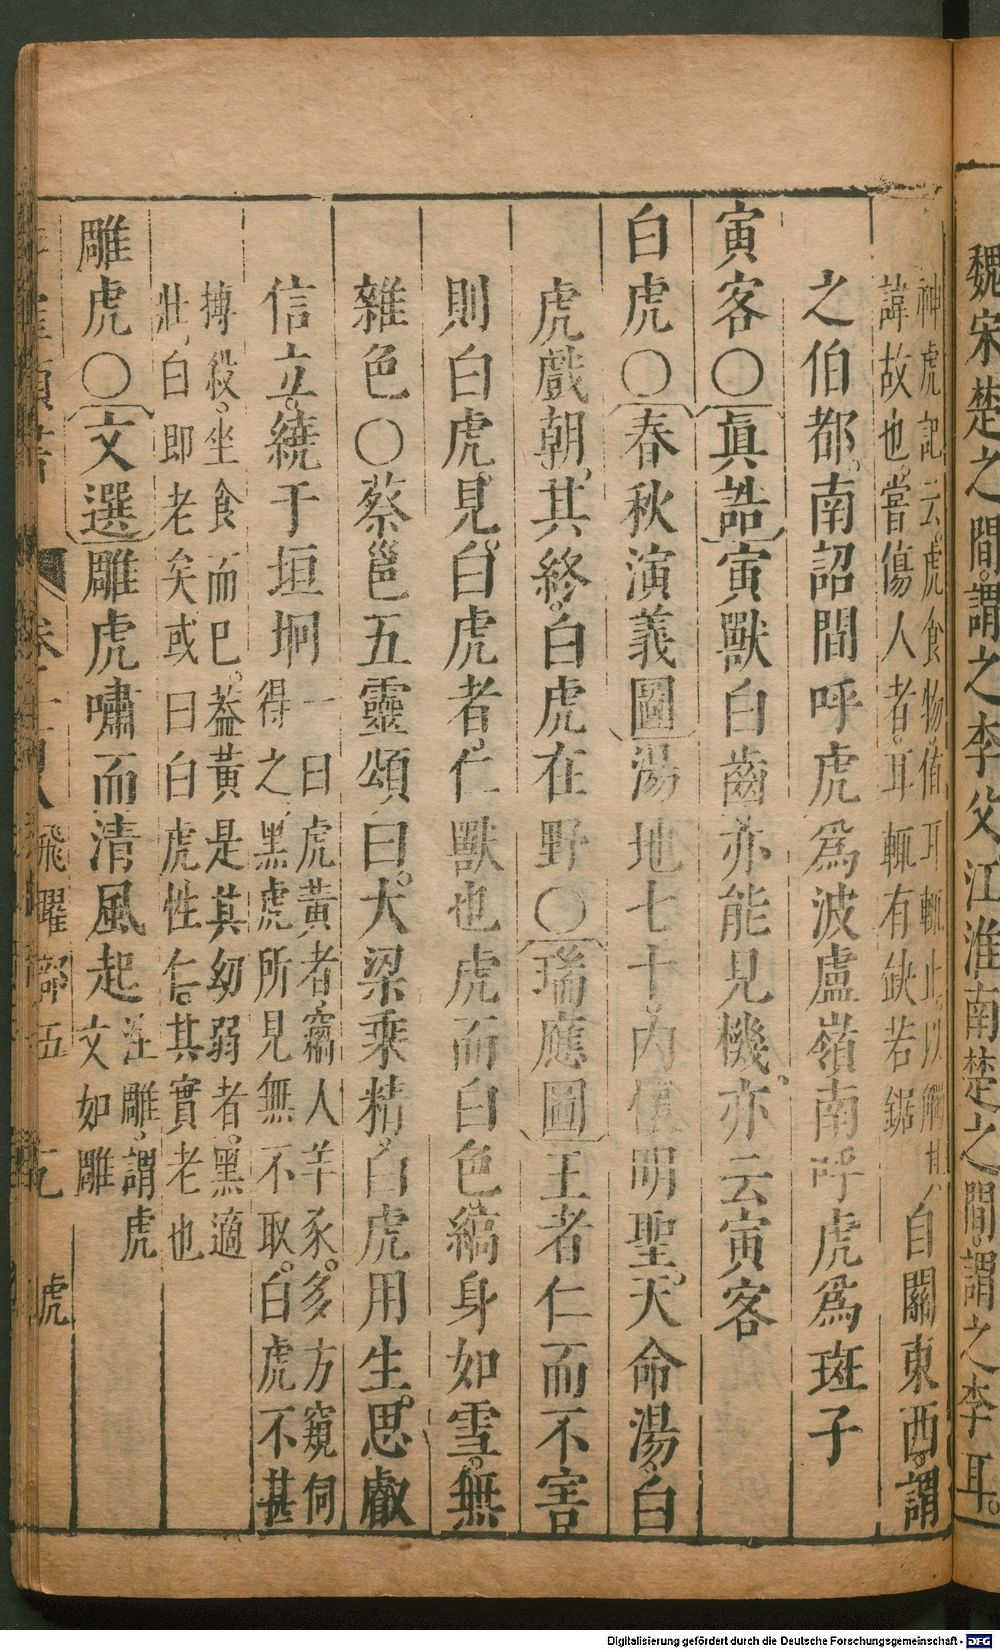 魏宋楚之間。謂之李父、江淮南楚之間。謂之李耳。
神虎記云。虎食物值耳輒止、以觸其
諱故也。嘗傷人者。耳輒有缺若鋸
自關東西。謂
之伯都。南詔間呼虎爲波盧嶺南呼虎爲斑子
寅客〇眞誥寅獸白齒亦能見機。亦云寅客
白虎〇春秋演義圖湯地七十。內懷明聖。天命湯。白
虎戲朝。其終。白虎在野〇瑞應圖王者仁而不害
則白虎見。白虎者、仁獸也虎而白色。縞身如雪。無
雜色〇蔡邕五靈頌曰。大梁乘精、白虎用生。思叡
信立。繞于垣坰
一曰虎黃者、竊人羊豕。多方窺伺
得之、黑虎所見無不取。白虎不甚
搏殺。坐食而已。葢黃是其幼弱者。黑適
壯、白即老矣或曰白虎性仁。其實老也
雕虎〇文選雕虎嘯而清風起
注雕、謂虎
文如雕
飛躍部五
虎
Digitalisierung gefördert durch die Deutsche Forschungsgemeinschaft - DFG